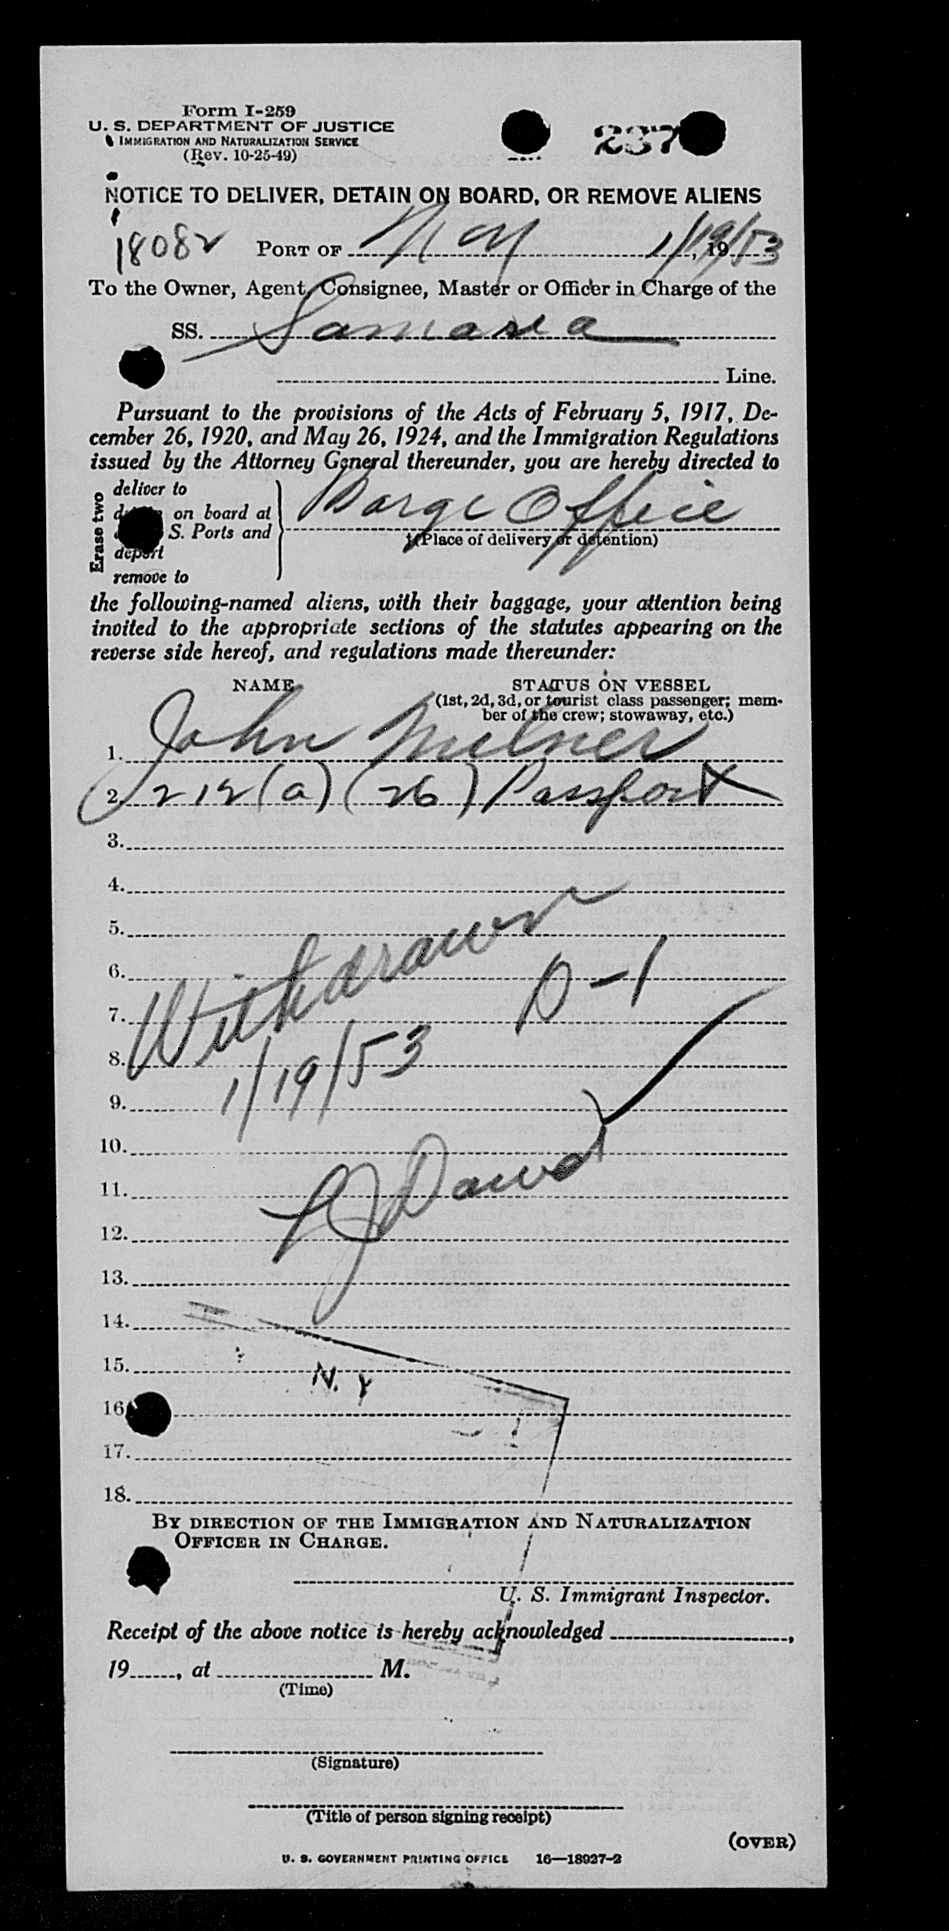 Form I-259
U. S. DEPARTMENT OF JUSTICE
IMMIGRATION AND NATURALIZATION SERVICE
(Rev. 10-25-49)
237
NOTICE TO DELIVER, DETAIN ON BOARD, OR REMOVE ALIENS
18082 PORT OF N Y 1/19/53, 19
To the Owner, Agent, Consignee, Master or Officer in Charge of the
SS. Samaria
Line.
Pursuant to the provisions of the Acts of February 5, 1917, De-
cember 26, 1920, and May 26, 1924, and the Immigration Regulations
issued by the Attorney General thereunder, you are hereby directed to
Erase two
deliver to
on board at
S. Ports and
deport
remove to
Barge Office
(Place of delivery or detention)
the following-named aliens, with their baggage, your attention being
invited to the appropriate sections of the statutes appearing on the
reverse side hereof, and regulations made thereunder:
NAME STATUS ON VESSEL
(1st, 2d, 3d, or tourist class passenger; mem-
ber of the crew; stowaway, etc.)
1. John Milner
2. 212(a)(26) Passport
3.
4.
5.
6. Withdrawn
7. D-1
8.
9. 1/19/53
10.
11.
12.
13.
14.
15. N. Y
16
17.
18.
BY DIRECTION OF THE IMMIGRATION AND NATURALIZATION
OFFICER IN CHARGE.
U. S. Immigrant Inspector.
Receipt of the above notice is hereby acknowledged ,
19 , at M.
(Time)
(Signature)
(Title of person signing receipt)
(OVER)
U. S. GOVERNMENT PRINTING OFFICE 16—18927-2